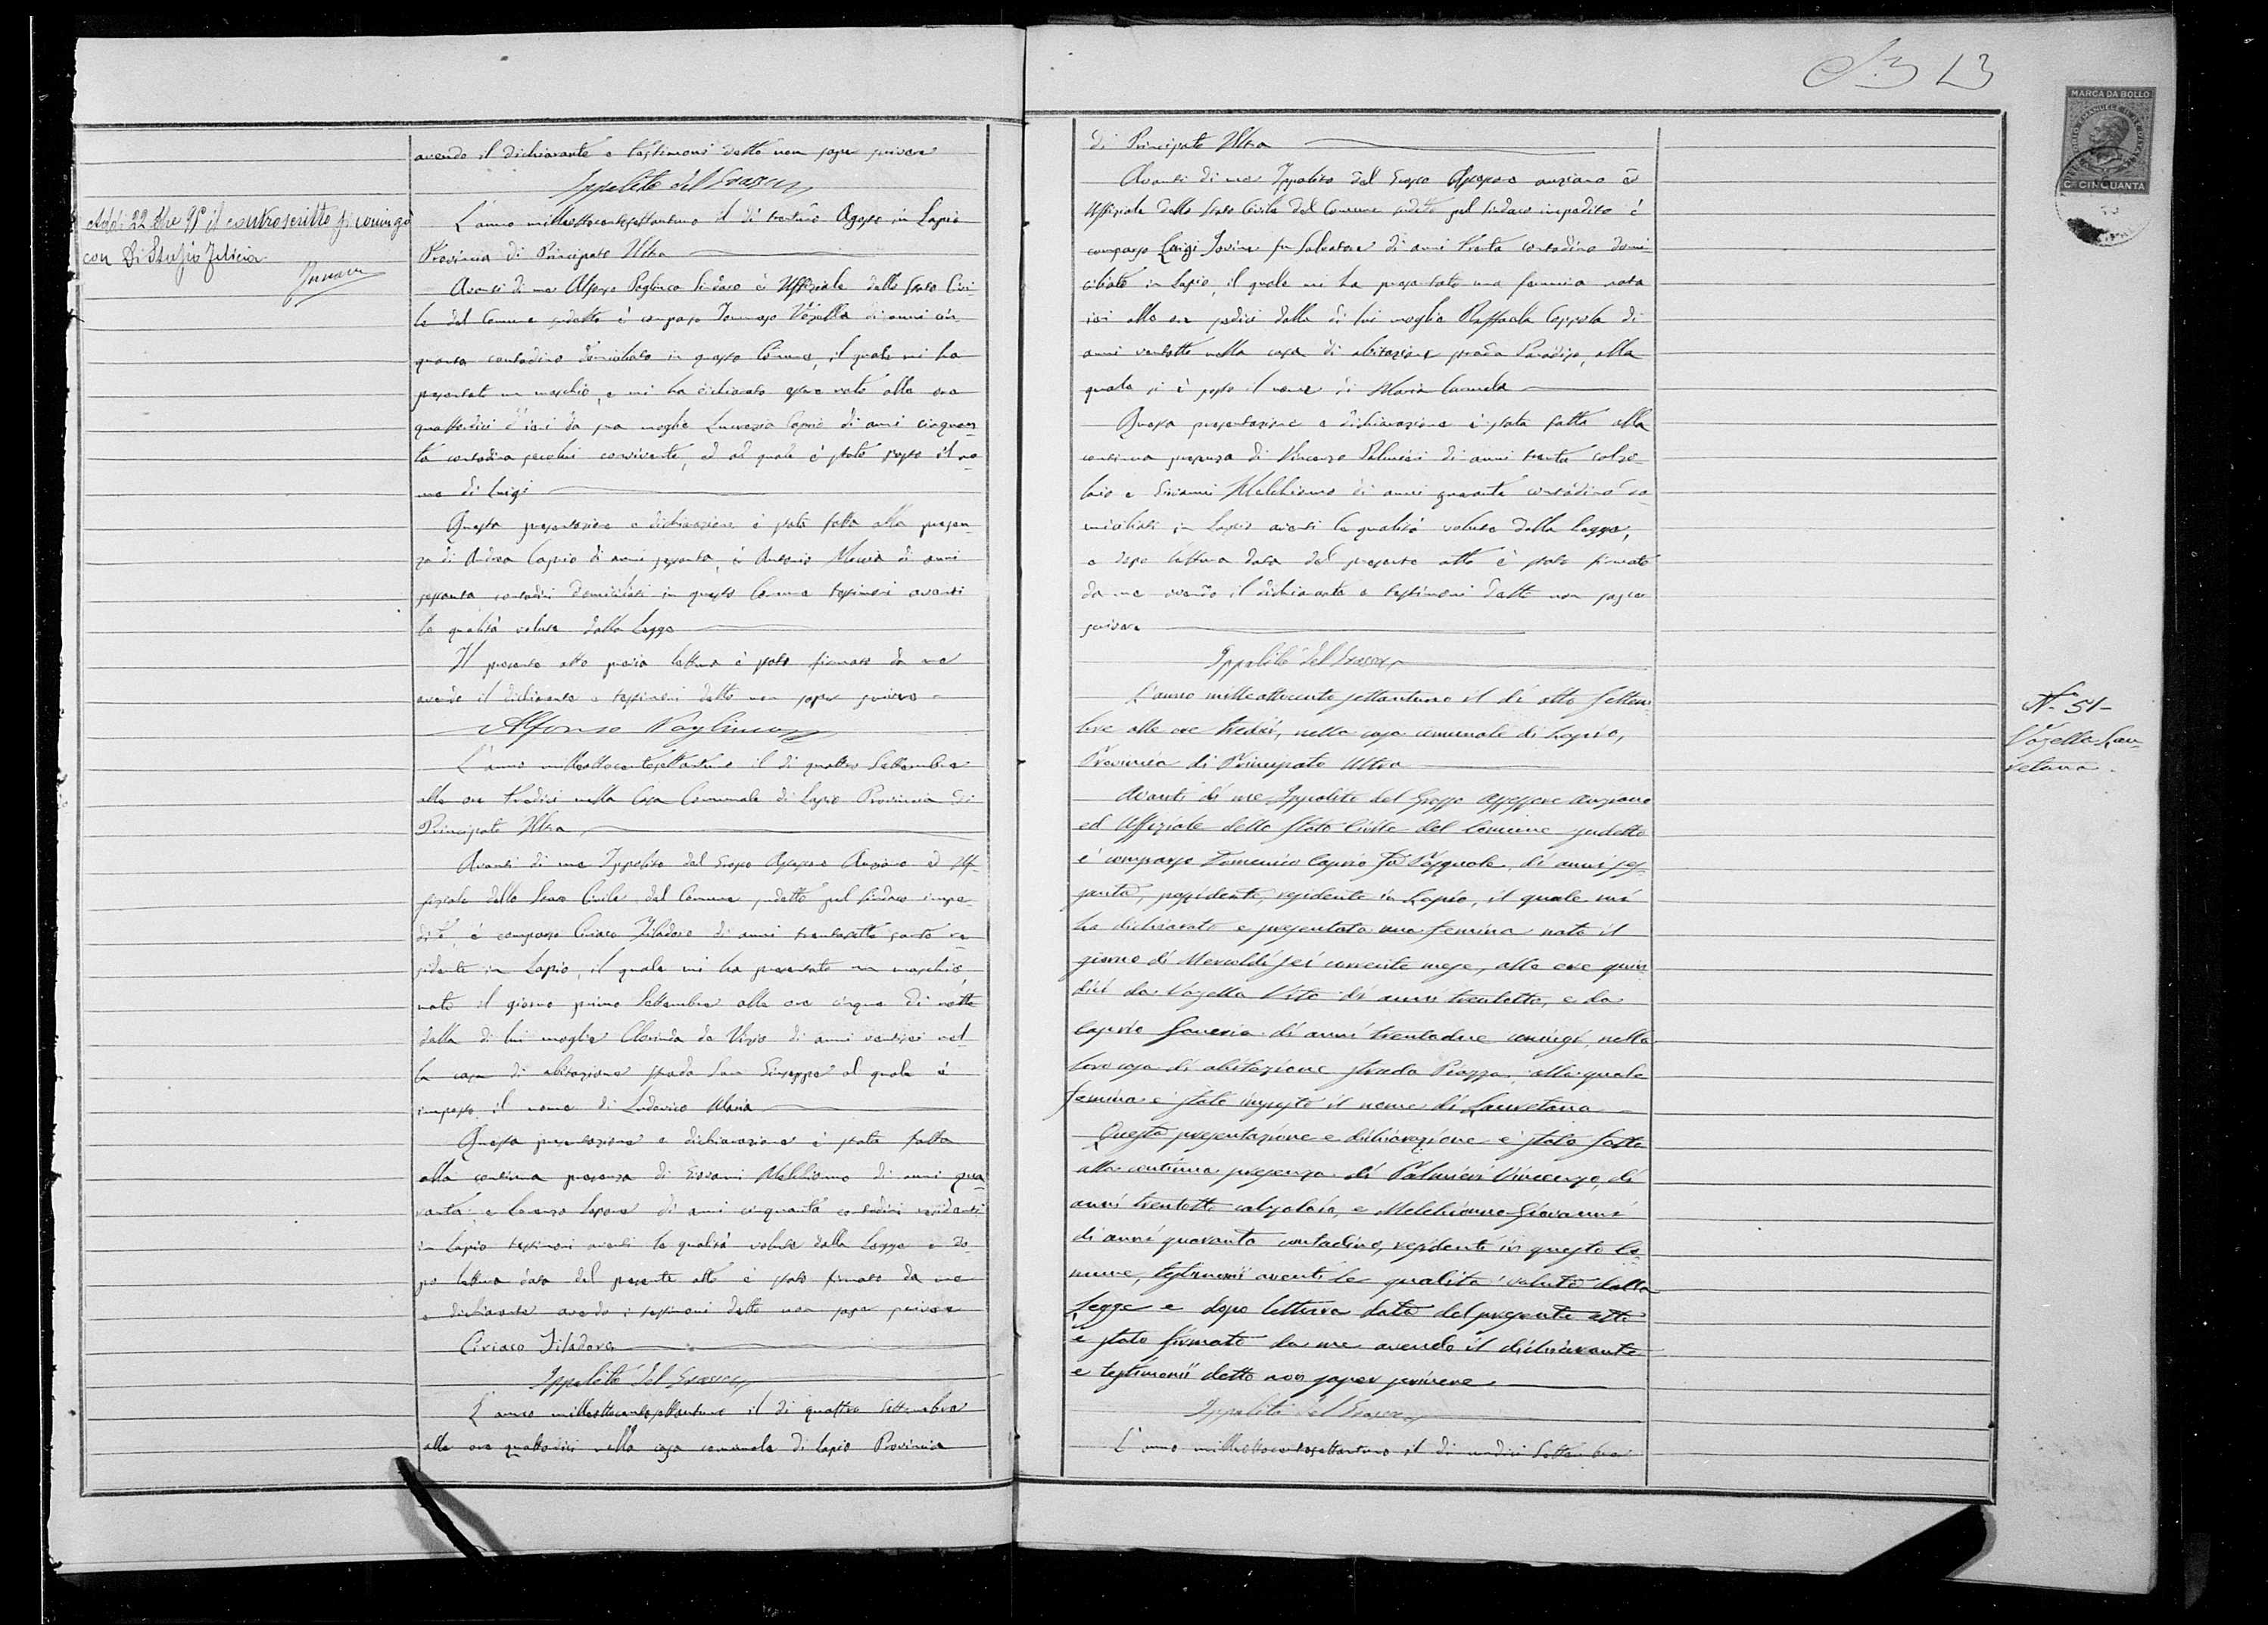 avendo il dichiarante e testimoni detto non saper scrivere
Ippolito del Grosso
Addì 22 Xbre 95 il controscritto si coniugò
con Di Stasio Felicia
L'anno milleottocentosettantuno il dì trentuno Agosto in Lapio
Provincia di Principato Ultra
Avanti di me Alfonso Pagliuca Sindaco ed Uffiziale dello Stato Civi-
le del Comune sudetto è comparso Tommaso Vozella di anni cin-
quanta contadino domiciliato in questo Comune, il quale mi ha
presentato un maschio, e mi ha dichiarato essere nato alle ore
quattordici d'ieri da sua moglie Lucrezia Caprio di anni cinquan-
ta contadina secolui convivente, ed al quale è stato posto il no-
me di Luigi
Questa presentazione e dichiarazione è stata fatta alla presen-
za di Andrea Caprio di anni sessanta, e Antonio di anni
sessanta contadini domiciliati in questo Comune testimoni aventi
le qualità volute dalla Legge
Il presente atto previa lettura è stato firmato da me
avendo il dichiarante e testimoni detto non saper scrivere
Alfonso Pagliuca
L'anno milleottocentosettantuno il dì quattro Settembre
alle ore tredici nella Casa Comunale di Lapio Provincia di
Principato Ultra
Avanti di me Ippolito del Grosso Assessore Anziano ed Uf-
fiziale dello Stato Civile del Comune sudetto pel Sindaco impe-
dito, è comparso Ciriaco Filadoro di anni trentasette sarto re-
sidente in Lapio, il quale mi ha presentato un maschio
nato il giorno primo Settembre alle ore cinque di notte
dalla di lui moglie Clorinda de Vizio di anni ventisei nel-
la casa di abitazione strada San Giuseppe al quale è
imposto il nome di Ludovico Maria
Questa presentazione e dichiarazione è stata fatta
alla continua presenza di Giovanni Melchionno di anni qua-
ranta e Lorenzo Lepore di anni cinquanta contadini residenti
in Lapio testimoni aventi le qualità volute dalla Legge e do-
po lettura data del presente atto è stato firmato da me
e dichiarante avendo i testimoni detto non saper scrivere
Ciriaco Filadoro
Ippolito del Grosso
L'anno milleottocentosettantuno il dì quattro Settembre
alle ore quattordici nella casa comunale di Lapio Provincia
MARCA DA BOLLO
Cmi CINQUANTA
di Principato Ultra
Avanti di me Ippolito del Grosso Assessore anziano ed
Uffiziale dello Stato Civile del Comune sudetto pel Sindaco impedito è
comparso Luigi Iovine fu Salvatore di anni trenta contadino domi-
ciliato in Lapio, il quale mi ha presentato una femina nata
ieri alle ore sedici dalla di lui moglie Raffaela Coppola di
anni ventotto nella casa di abitazione strada Paradiso, alla
quale si è posto il nome di Maria Carmela
Questa presentazione e dichiarazione è stata fatta alla
continua presenza di Vincenzo Palmieri di anni trenta calzo-
laio e Giovanni Melchionno di anni quaranta contadino do-
miciliati in Lapio aventi le qualità volute dalla Legge,
e dopo lettura data del presente atto è stato firmato
da me avendo il dichiarante e testimoni detto non saper
scrivere
Ippolito del Grosso
L'anno milleottocento settantuno il dì otto Settem-
bre alle ore tredici, nella casa comunale di Lapio,
Provincia di Principato Ultra
Avanti di me Ippolito del Grosso Assessore anziano
ed Uffiziale dello Stato Civile del Comune sudetto
è comparso Domenico Caprio fu Pasquale, di anni ses-
santa, possidente, residente in Lapio, il quale mi
ha dichiarato e presentato una femina nata il
giorno di Mercoldì sei corrente mese, alle ore quin-
dici da Vozella Vito di anni trentotto, e da
Caprio Saveria di anni trentadue coniugi, nella
loro casa di abitazione strada Piazza, alla quale
femina è stato imposto il nome di Lauretana
Questa presentazione e dichiarazione è stata fatta
alla continua presenza di Palmieri Vincenzo, di
anni trentotto calzolaio, e Melchionno Giovanni
di anni quaranta contadino, residenti in questo Co-
mune, testimonii aventi le qualità volute dalla
Legge e dopo lettura data del presente atto
è stato firmato da me avendo il dichiarante
e testimonii detto non saper scrivere.
Ippolito del Grosso
L'anno milleottocentosettantuno il dì undici Settembre
N. 51
Vozella Lau-
retana